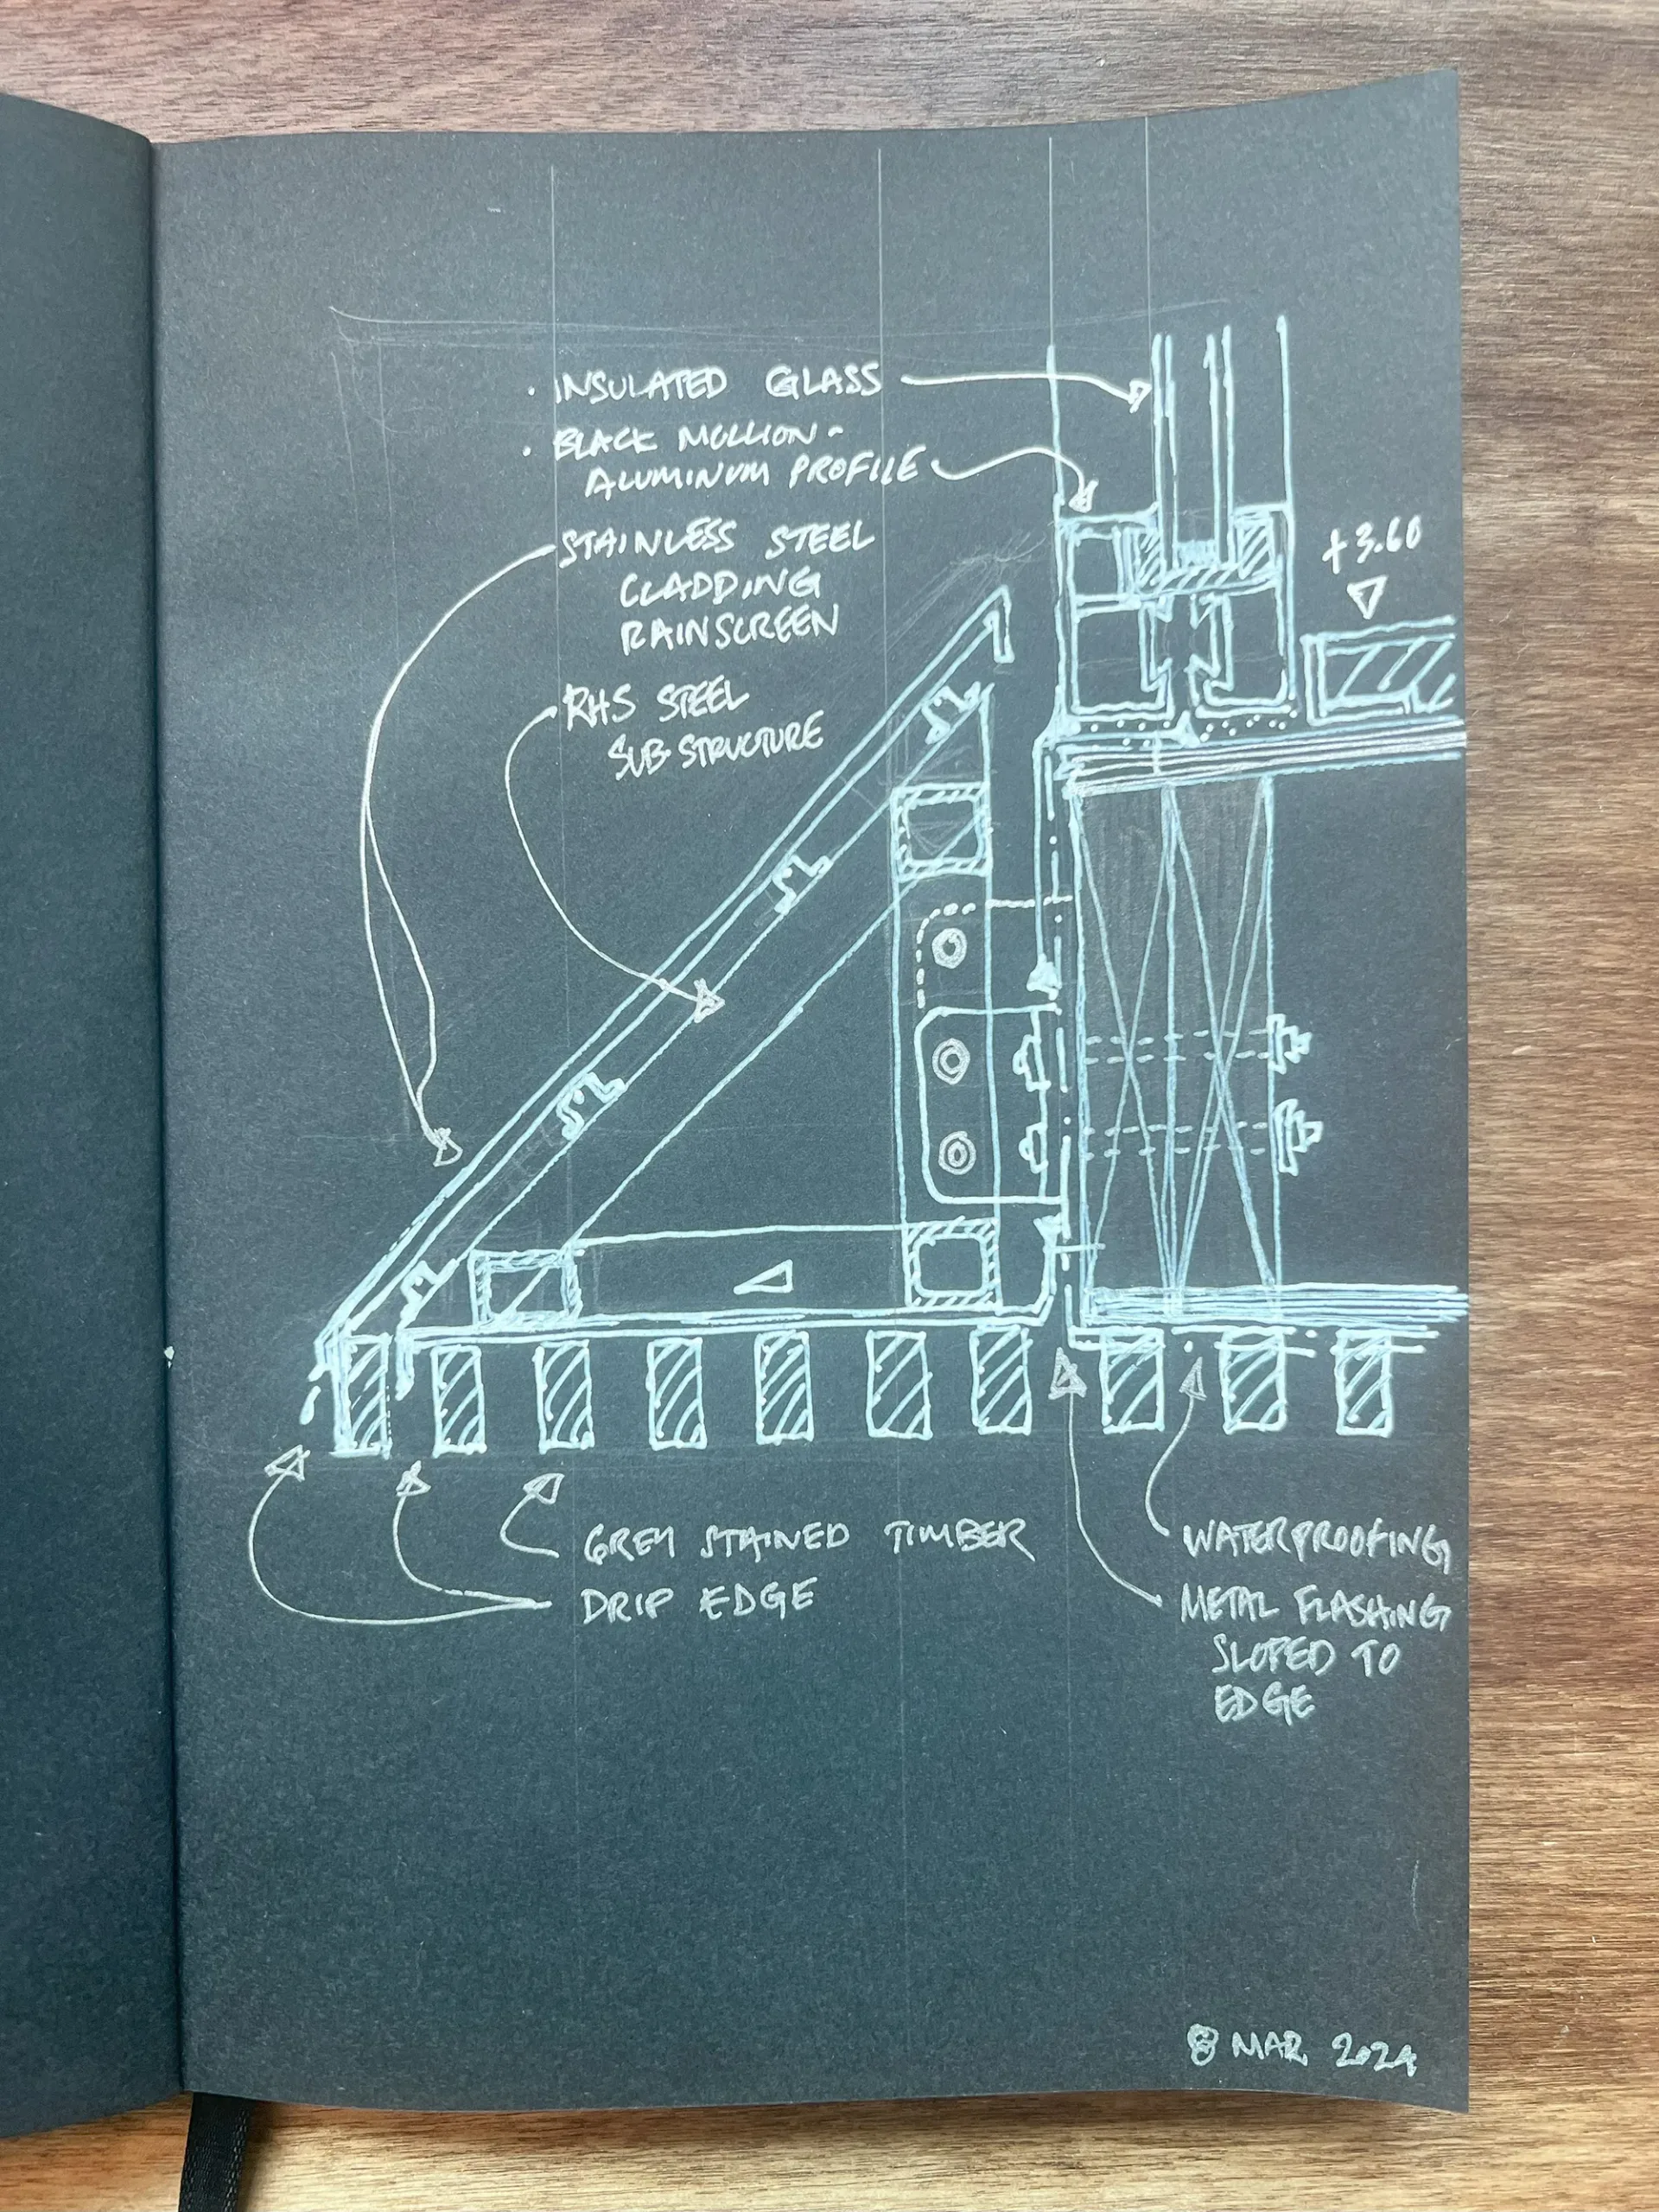 · INSULATED GLASS
· BLACK MULLION -
ALUMINUM PROFILE
STAINLESS STEEL
CLADDING
RAINSCREEN
RHS STEEL
SUB STRUCTURE
+3.60
GREY STAINED TIMBER
DRIP EDGE
WATERPROOFING
METAL FLASHING
SLOPED TO
EDGE
8 MAR 2024